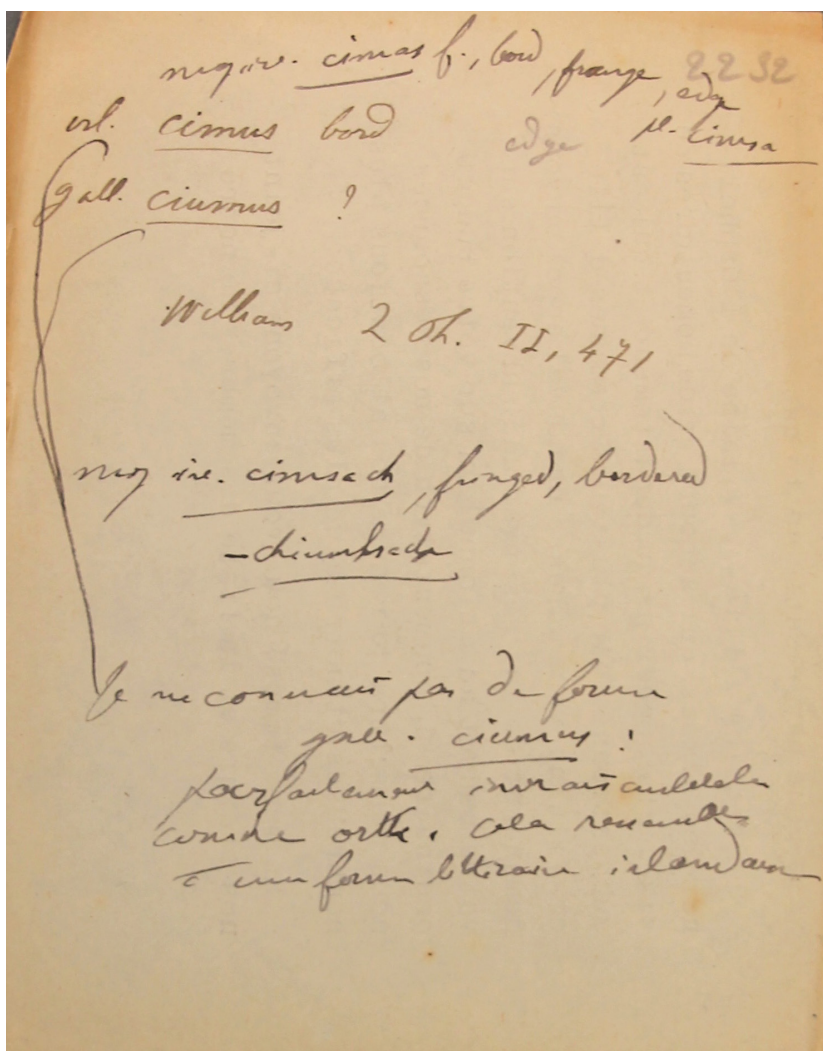 moy. ir. cimas f., bord, frange, edge
2232
irl. cimus bord edge pl. cimsa
gall. ciumus ?
Williams 2 Oh. II, 471
moy ir. cimsach, fringed, bordered
-chiumhsach
Je ne connais pas de forme
gall. ciumus !
parfaitement invraisemblable
comme orth. Cela ressemble
à une forme littéraire irlandaise